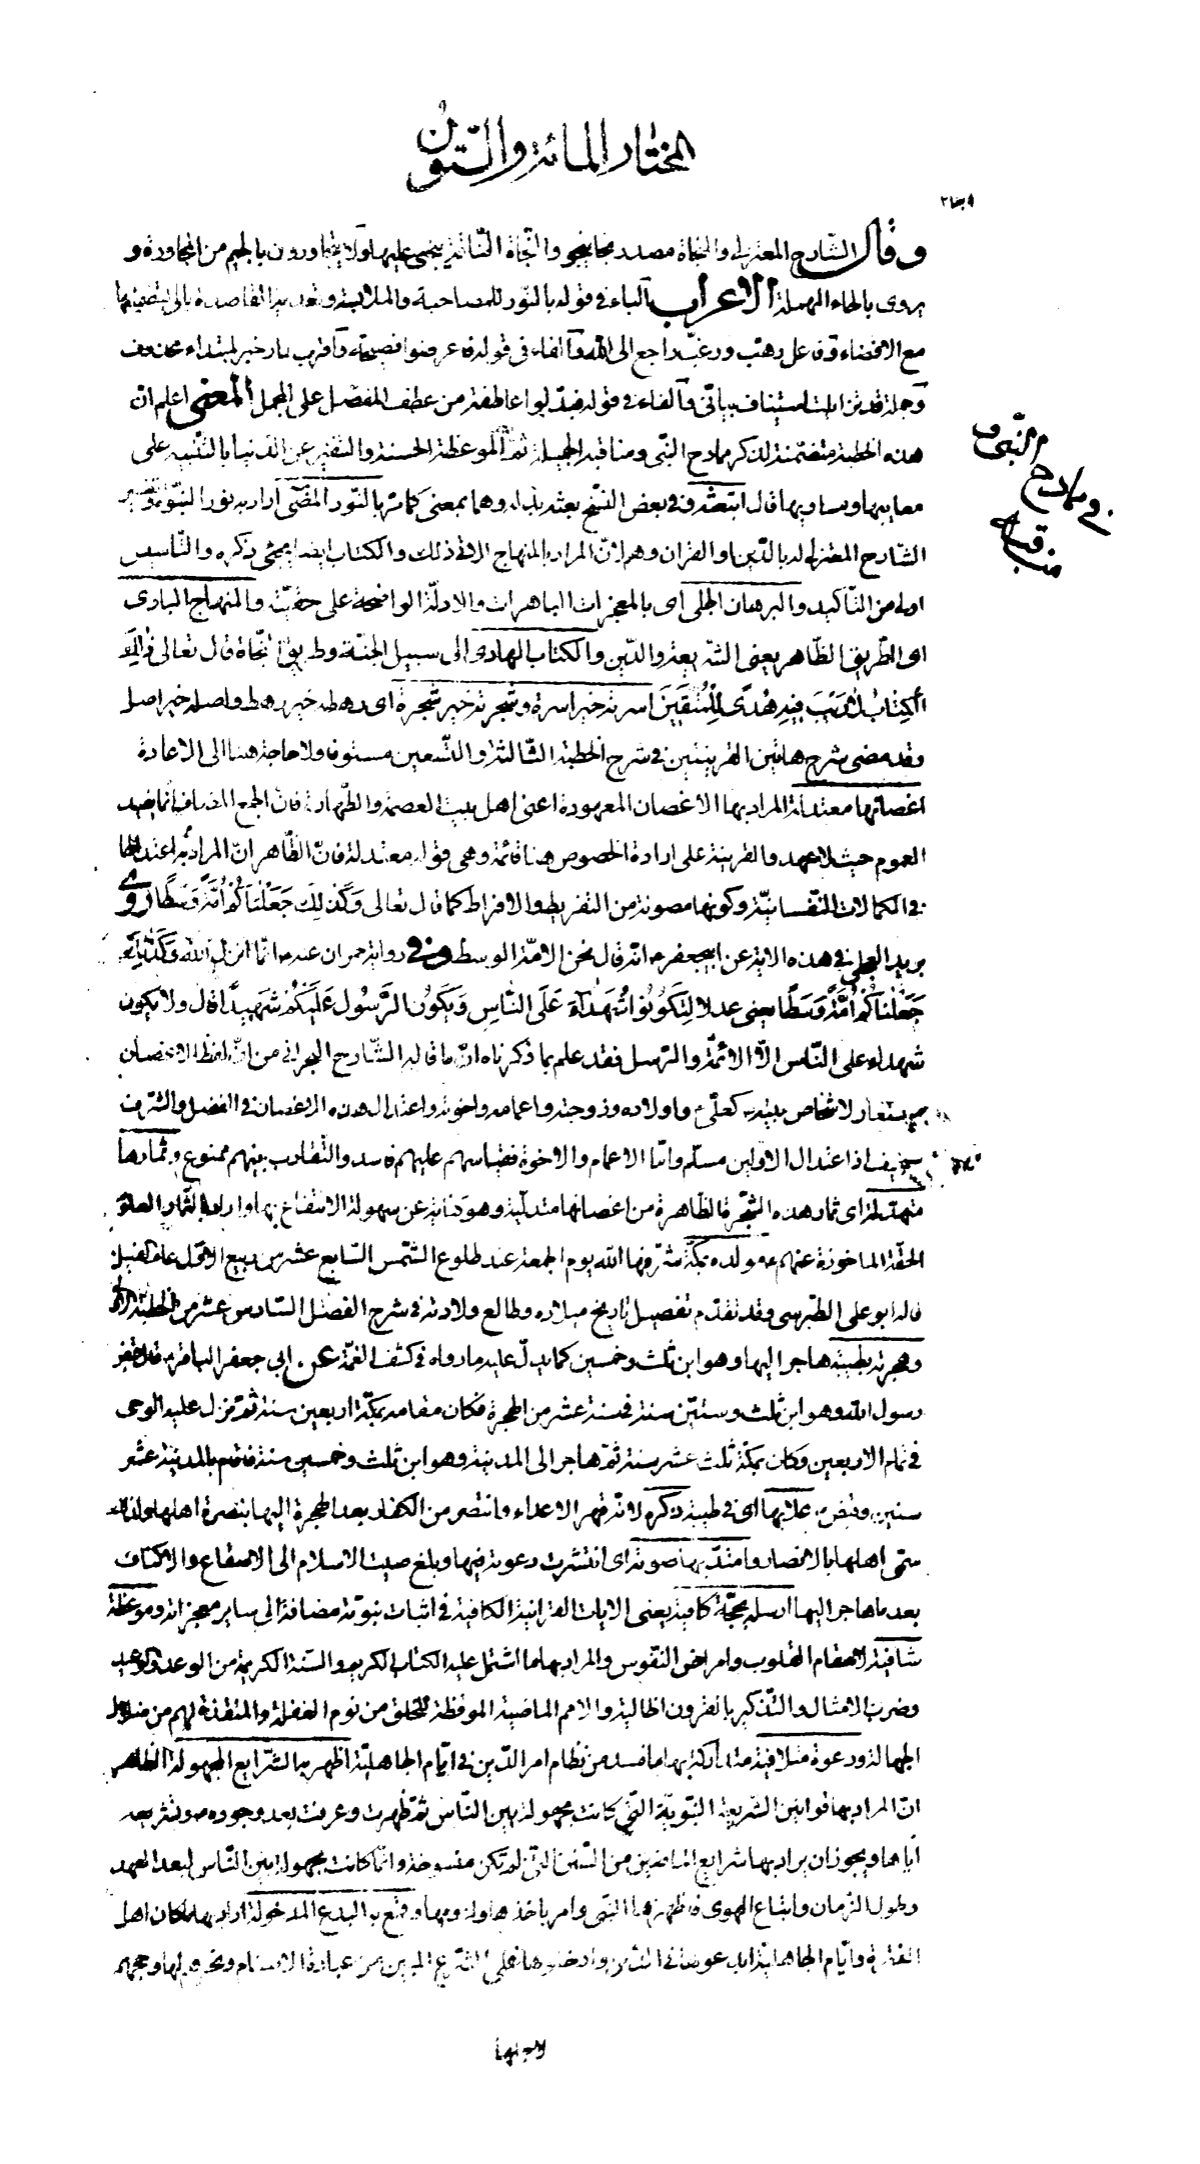 المختار المائة والستون
وقال الشارح المعتزلي والنجاة مصدر نجا ينجو والنجاة الناقة ينجى عليها ولا يتجاورون بالجيم من المجاورة و
يروى بالحاء المهملة الاعراب الباء في قوله بالنور للمصاحبة والملابسة وتعدية القاصدة بالى لتضمينها
مع الافضاء وفاعل رهب ورغب راجع الى الله والفاء في قوله فاعرضوا فصيحة واقرب دار خبر لمبتداء محذوف
وجملة قد تزايلت استيناف بياني والفاء في قوله فبدلوا عاطفة من عطف المفصل على المجمل المعنى اعلم ان
هذه الخطبة متضمنة لذكر ممادح النبي ومناقبه الجميلة ثم الموعظة الحسنة والتنفير عن الدنيا بالتنبيه على
في ممادح النبي و مناقبه
معايبها ومساويها قال ابتعثه وفي بعض النسخ بعثه بدله وهما بمعنى كما مر بالنور المضئ اراد به نور النبوة
الشارح المعتزلي له بالدين والقران وهم لان المراد بالمنهاج الاتي ذلك والكتاب ايضا يجئ ذكره والتاسيس
اوله من التاكيد والبرهان الجلى اى بالمعجزات الباهرات والادلة الواضحة على حقيته والمنهاج البادى
اى الطريق الظاهر يعنى الشريعة والدين والكتاب الهادى الى سبيل الجنة وطريق النجاة قال تعالى
الكتاب لا ريب فيه هدى للمتقين اسرته خير اسرة وشجرته خير شجرة اى رهطه خير رهط واصله خير اصل
وقد مضى شرح هاتين القرينتين في شرح الخطبة الثالثة والتسعين مستوفا ولا حاجة هنا الى الاعادة
اغصانها معتدلة المراد بها الاغصان المعهودة اعنى اهل بيت العصمة والطهارة فان الجمع المضاف انما يفيد
العموم حيث لا عهد والقرينة على ارادة الخصوص هنا قائمة وهى قوله معتدلة فان الظاهر ان المراد به اعتدالها
في الكمالات النفسانية وكونها مصونة من التفريط والافراط كما قال تعالى وكذلك جعلناكم امة وسطا روى
بريد العجلى في هذه الاية عن ابيجعفر ع انه قال نحن الامة الوسط وفي رواية حمران عنه ع انما انزل الله وكذلك
جعلناكم امة وسطا يعنى عدلا لتكونوا شهداء على الناس ويكون الرسول عليكم شهيدا قال ولا يكون
شهداء على الناس الا الائمة والرسل فقد علم بما ذكرناه ان ما قاله الشارح البحراني من ان لفظ الاغصان
مستعار لاشخاص بيته كعلى ع واولاده وزوجته واعمامه واخوته واعتدال هذه الاغصان في الفضل والشرف
سخيف اذ اعتدال الاولين مسلم واما الاعمام والاخوة فقياسهم عليهم فاسد والتقارب بينهم ممنوع وثمارها
متهدلة اى ثمار هذه الشجرة الظاهرة من اغصانها متدلية وهو كناية عن سهولة الانتفاع بها واراد بالثمار العلوم
الحقة الماخوذة عنهم ع مولده بمكة شرفها الله يوم الجمعة عند طلوع الشمس السابع عشر من ربيع الاول عام الفيل
قاله ابو على الطبرسى وقد تقدم تفصيل تاريخ ميلاده وطالع ولادته في شرح الفصل السادس عشر من الخطبة الاولى
وهجرته بطيبة هاجر اليها وهو ابن ثلث وخمسين كما يدل عليه ما رواه في كشف الغمة عن ابي جعفر الباقر ع
رسول الله وهو ابن ثلث وستين سنة في سنة عشر من الهجرة فكان مقامه بمكة اربعين سنة ثم نزل عليه الوحى
في تمام الاربعين وكان بمكة ثلث عشر سنة ثم هاجر الى المدينة وهو ابن ثلث وخمسين سنة فاقام بالمدينة عشر
سنين وقبض علا بها اى في طيبة ذكره لانه قهر الاعداء وانتصر من الكفار بعد الهجرة اليها بنصرة اهلها
سمى اهلها بالانصار وامتد بها صوته اى انتشرت دعوته فيها وبلغ صيت الاسلام الى الاصقاع والاكناف
بعد ما هاجر اليها ارسله بحجة كافية يعنى الايات القرانية الكافية في اثبات نبوته مضافة الى ساير معجزاته وموعظة
شافية لاسقام القلوب وامراض النفوس والمراد بها ما اشتمل عليه الكتاب الكريم والسنة الكريمة من الوعد والوعيد
وضرب الامثال والتذكير بالقرون الخالية والامم الماضية الموقظة للخلق من نوم الغفلة والمنقذة لهم من ضلال
الجهالة ودعوة متلافية متداركة بها ما فسد من نظام امر الدين في ايام الجاهلية اظهر به الشرايع المجهولة الظاهر
ان المراد بها قوانين الشريعة النبوية التى كانت مجهولة بين الناس ثم ظهرت وعرفت بعد وجوده
اياها ويجوز ان يراد بها شرايع الماضين من السنن التى لم تكن منسوخة وانما كانت مجهولة بين الناس لبعد العهد
وطول الزمان واتباع الهوى فاظهرها النبى وامر باخذها ولزومها وقمع به البدع المدخولة اراد بها ما كان اهل
الفترة وايام الجاهلية ابدعوها في الدين وادخلوها على الشرع المبين من عبادة الاصنام ونحرهم لها وحجهم